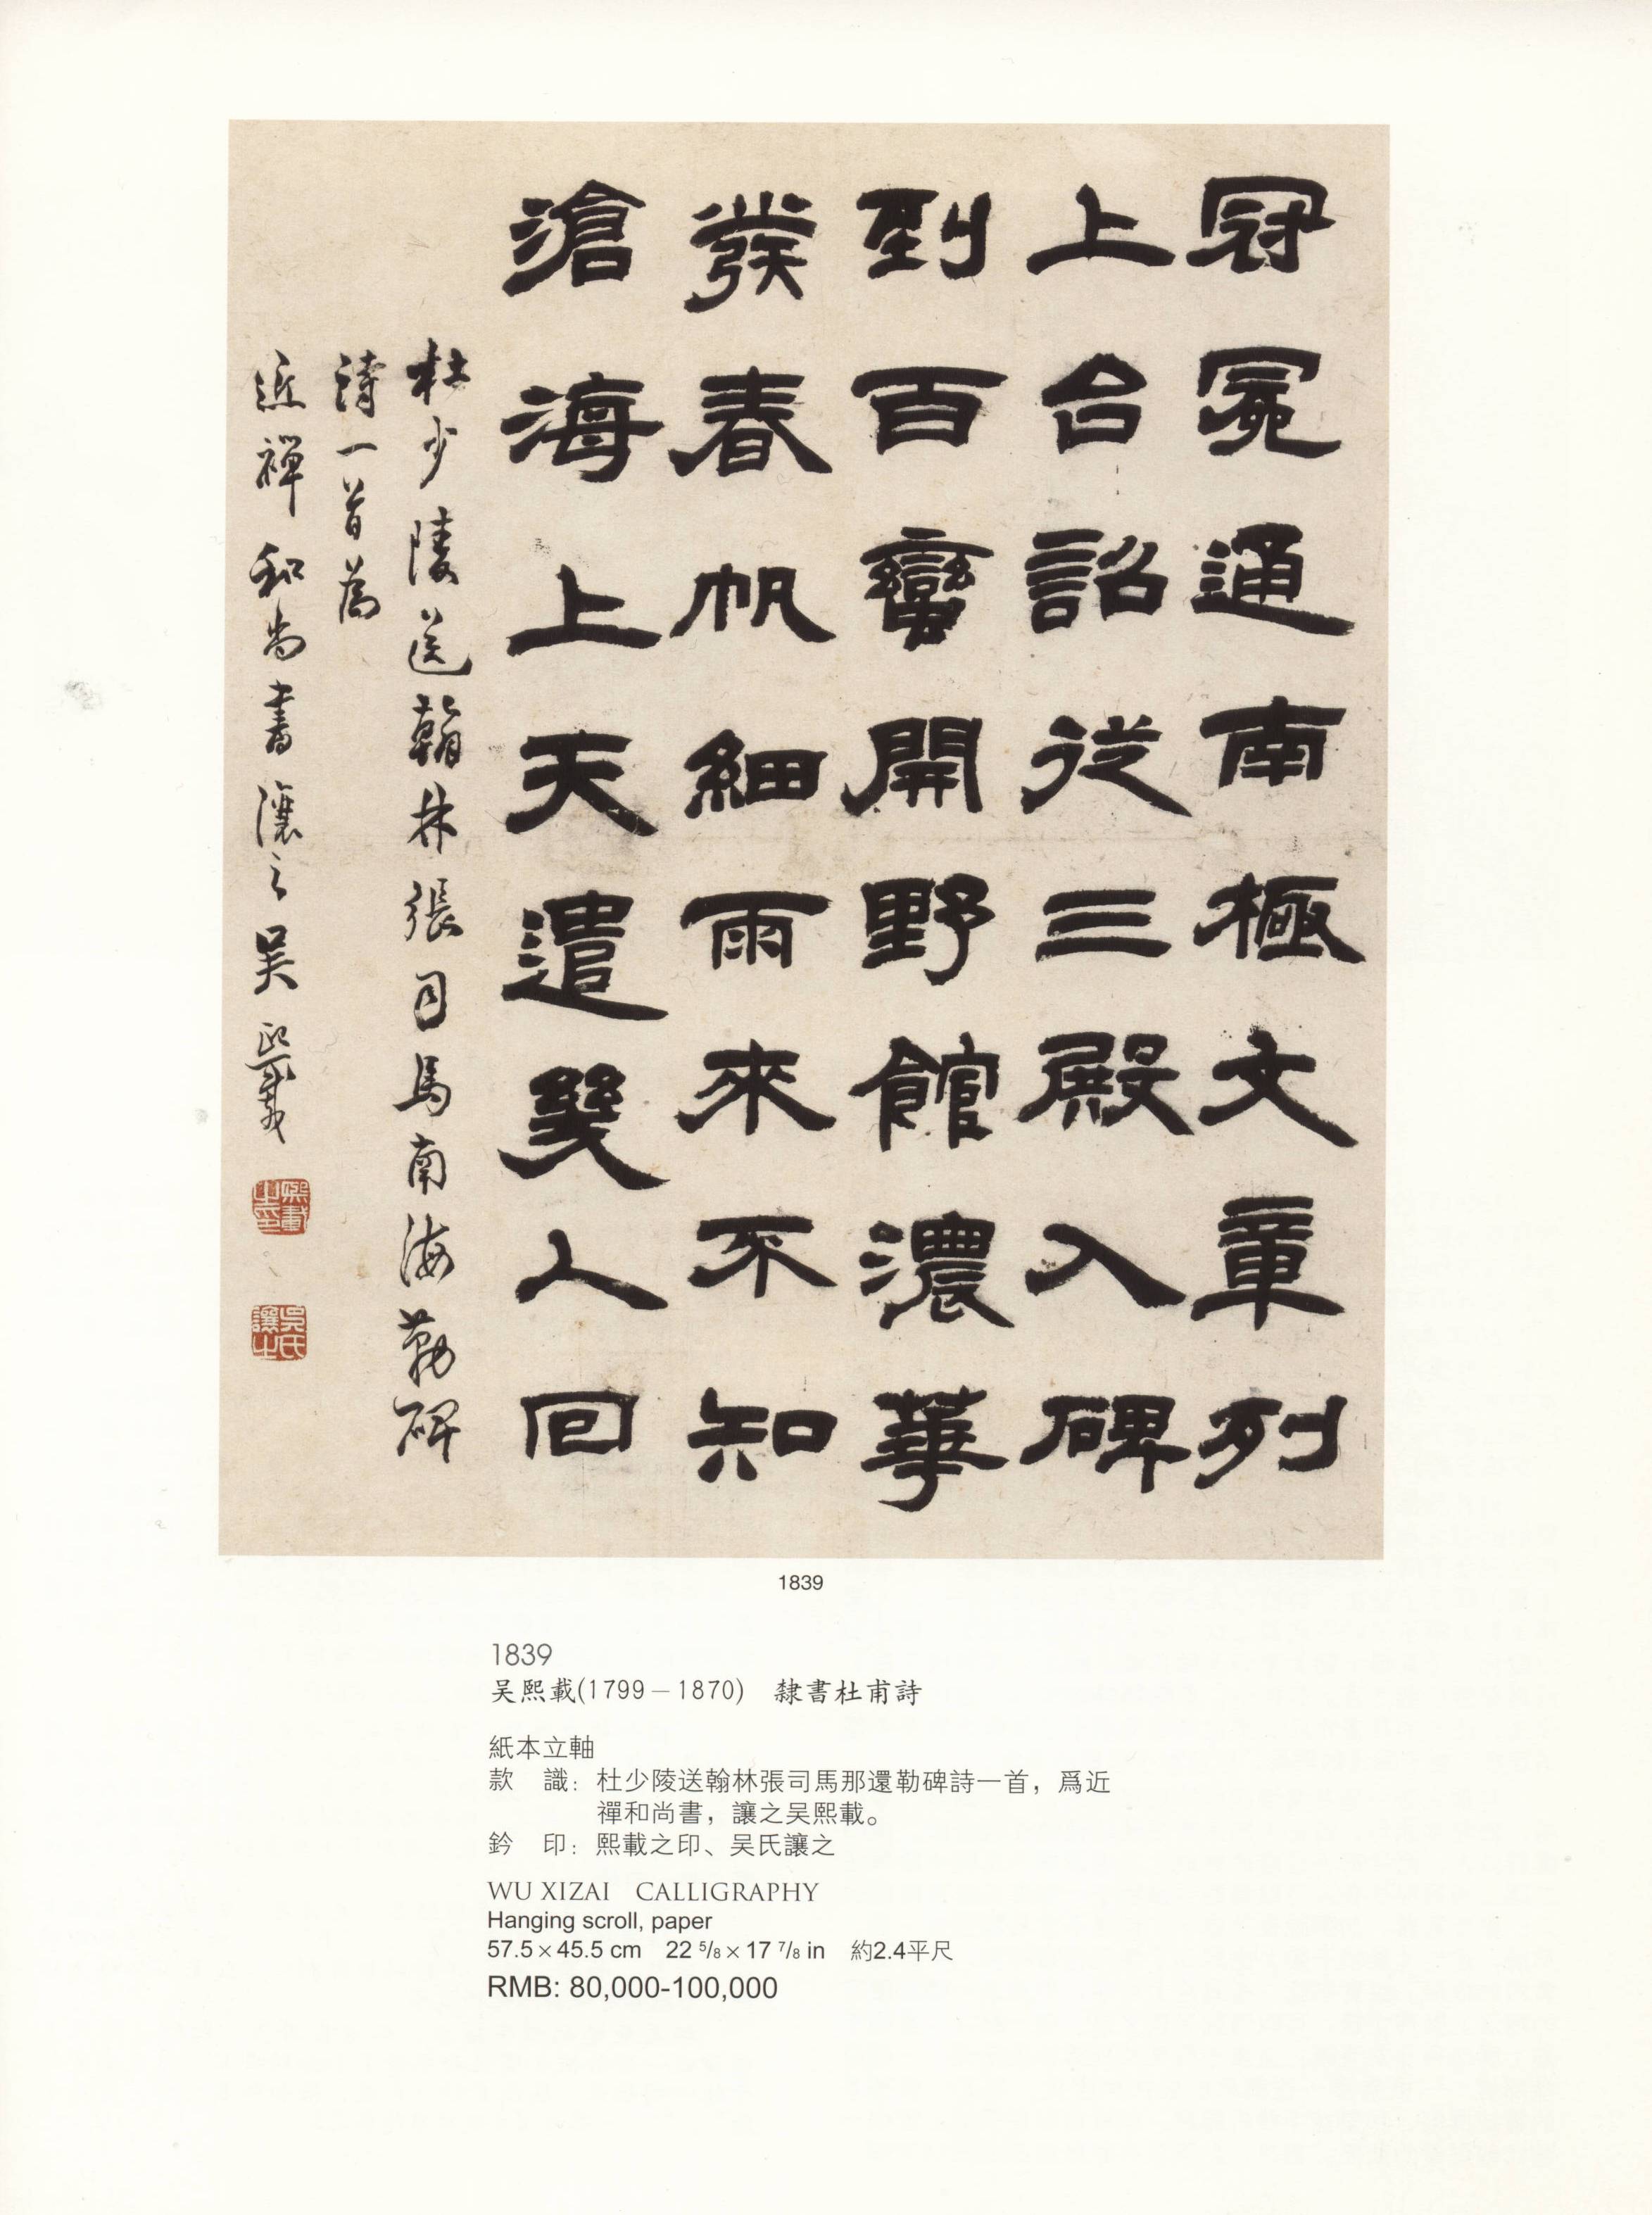 冠冕通南極文章列
上台詔從三殿入碑
到百蠻開野館濃華
發春帆細雨來不知
滄海上天遣幾人回
杜少陵送翰林張司馬南海勒碑
詩一首為
近禪和尚書讓之吳熙載
熙載之印
吳氏讓之
1839
1839
吴熙載(1799－1870)　隸書杜甫詩
紙本立軸
款　識：杜少陵送翰林張司馬那還勒碑詩一首，爲近
禪和尚書，讓之吴熙載。
鈐　印：熙載之印、吴氏讓之
WU XIZAI　CALLIGRAPHY
Hanging scroll, paper
57.5×45.5 cm　22 5/8×17 7/8 in　約2.4平尺
RMB: 80,000-100,000